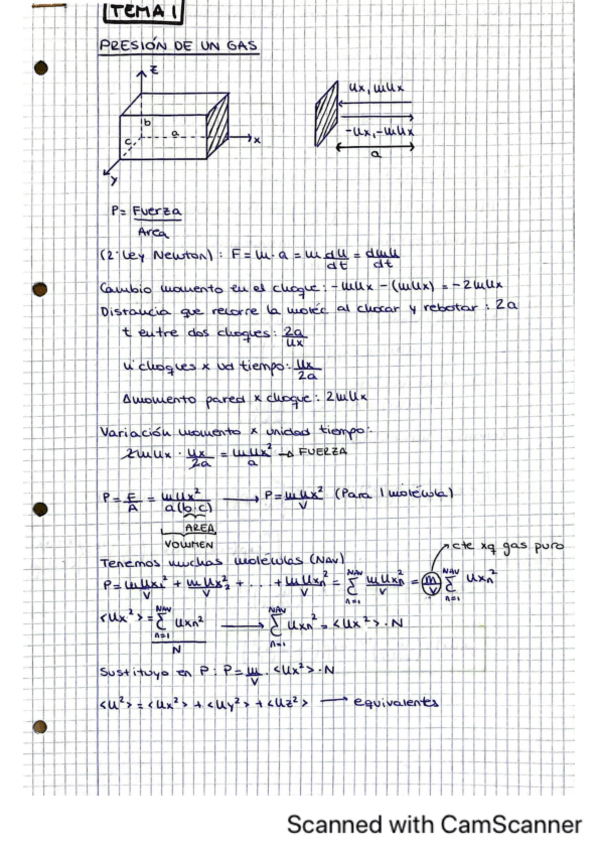 TEMA 1
PRESIÓN DE UN GAS
z
b
a
c
x
y
ux, mux
-ux, -mux
a
P = Fuerza / Area
(2ª Ley Newton): F = m·a = m du/dt = dmu/dt
Cambio momento en el choque: -mux - (mux) = -2mux
Distancia que recorre la moléc al chocar y rebotar: 2a
t entre dos choques: 2a/ux
nº choques x ud tiempo: ux/2a
Δmomento pared x choque: 2mux
Variación momento x unidad tiempo:
2mux · ux/2a = mux²/a → FUERZA
P = F/A = mux²/a(b·c) → P = mux²/V (Para 1 molécula)
AREA
VOLUMEN
Tenemos muchas moléculas (NAV)
cte xq gas puro
P = mux₁²/V + mux₂²/V + ... + muxn²/V = Σ(n=1, NAV) muxn²/V = m/V Σ(n=1, NAV) uxn²
<ux²> = Σ(n=1, NAV) uxn² / N → Σ(n=1, NAV) uxn² = <ux²>·N
Sustituyo en P: P = m/V · <ux²>·N
<u²> = <ux²> + <uy²> + <uz²> → equivalentes
Scanned with CamScanner